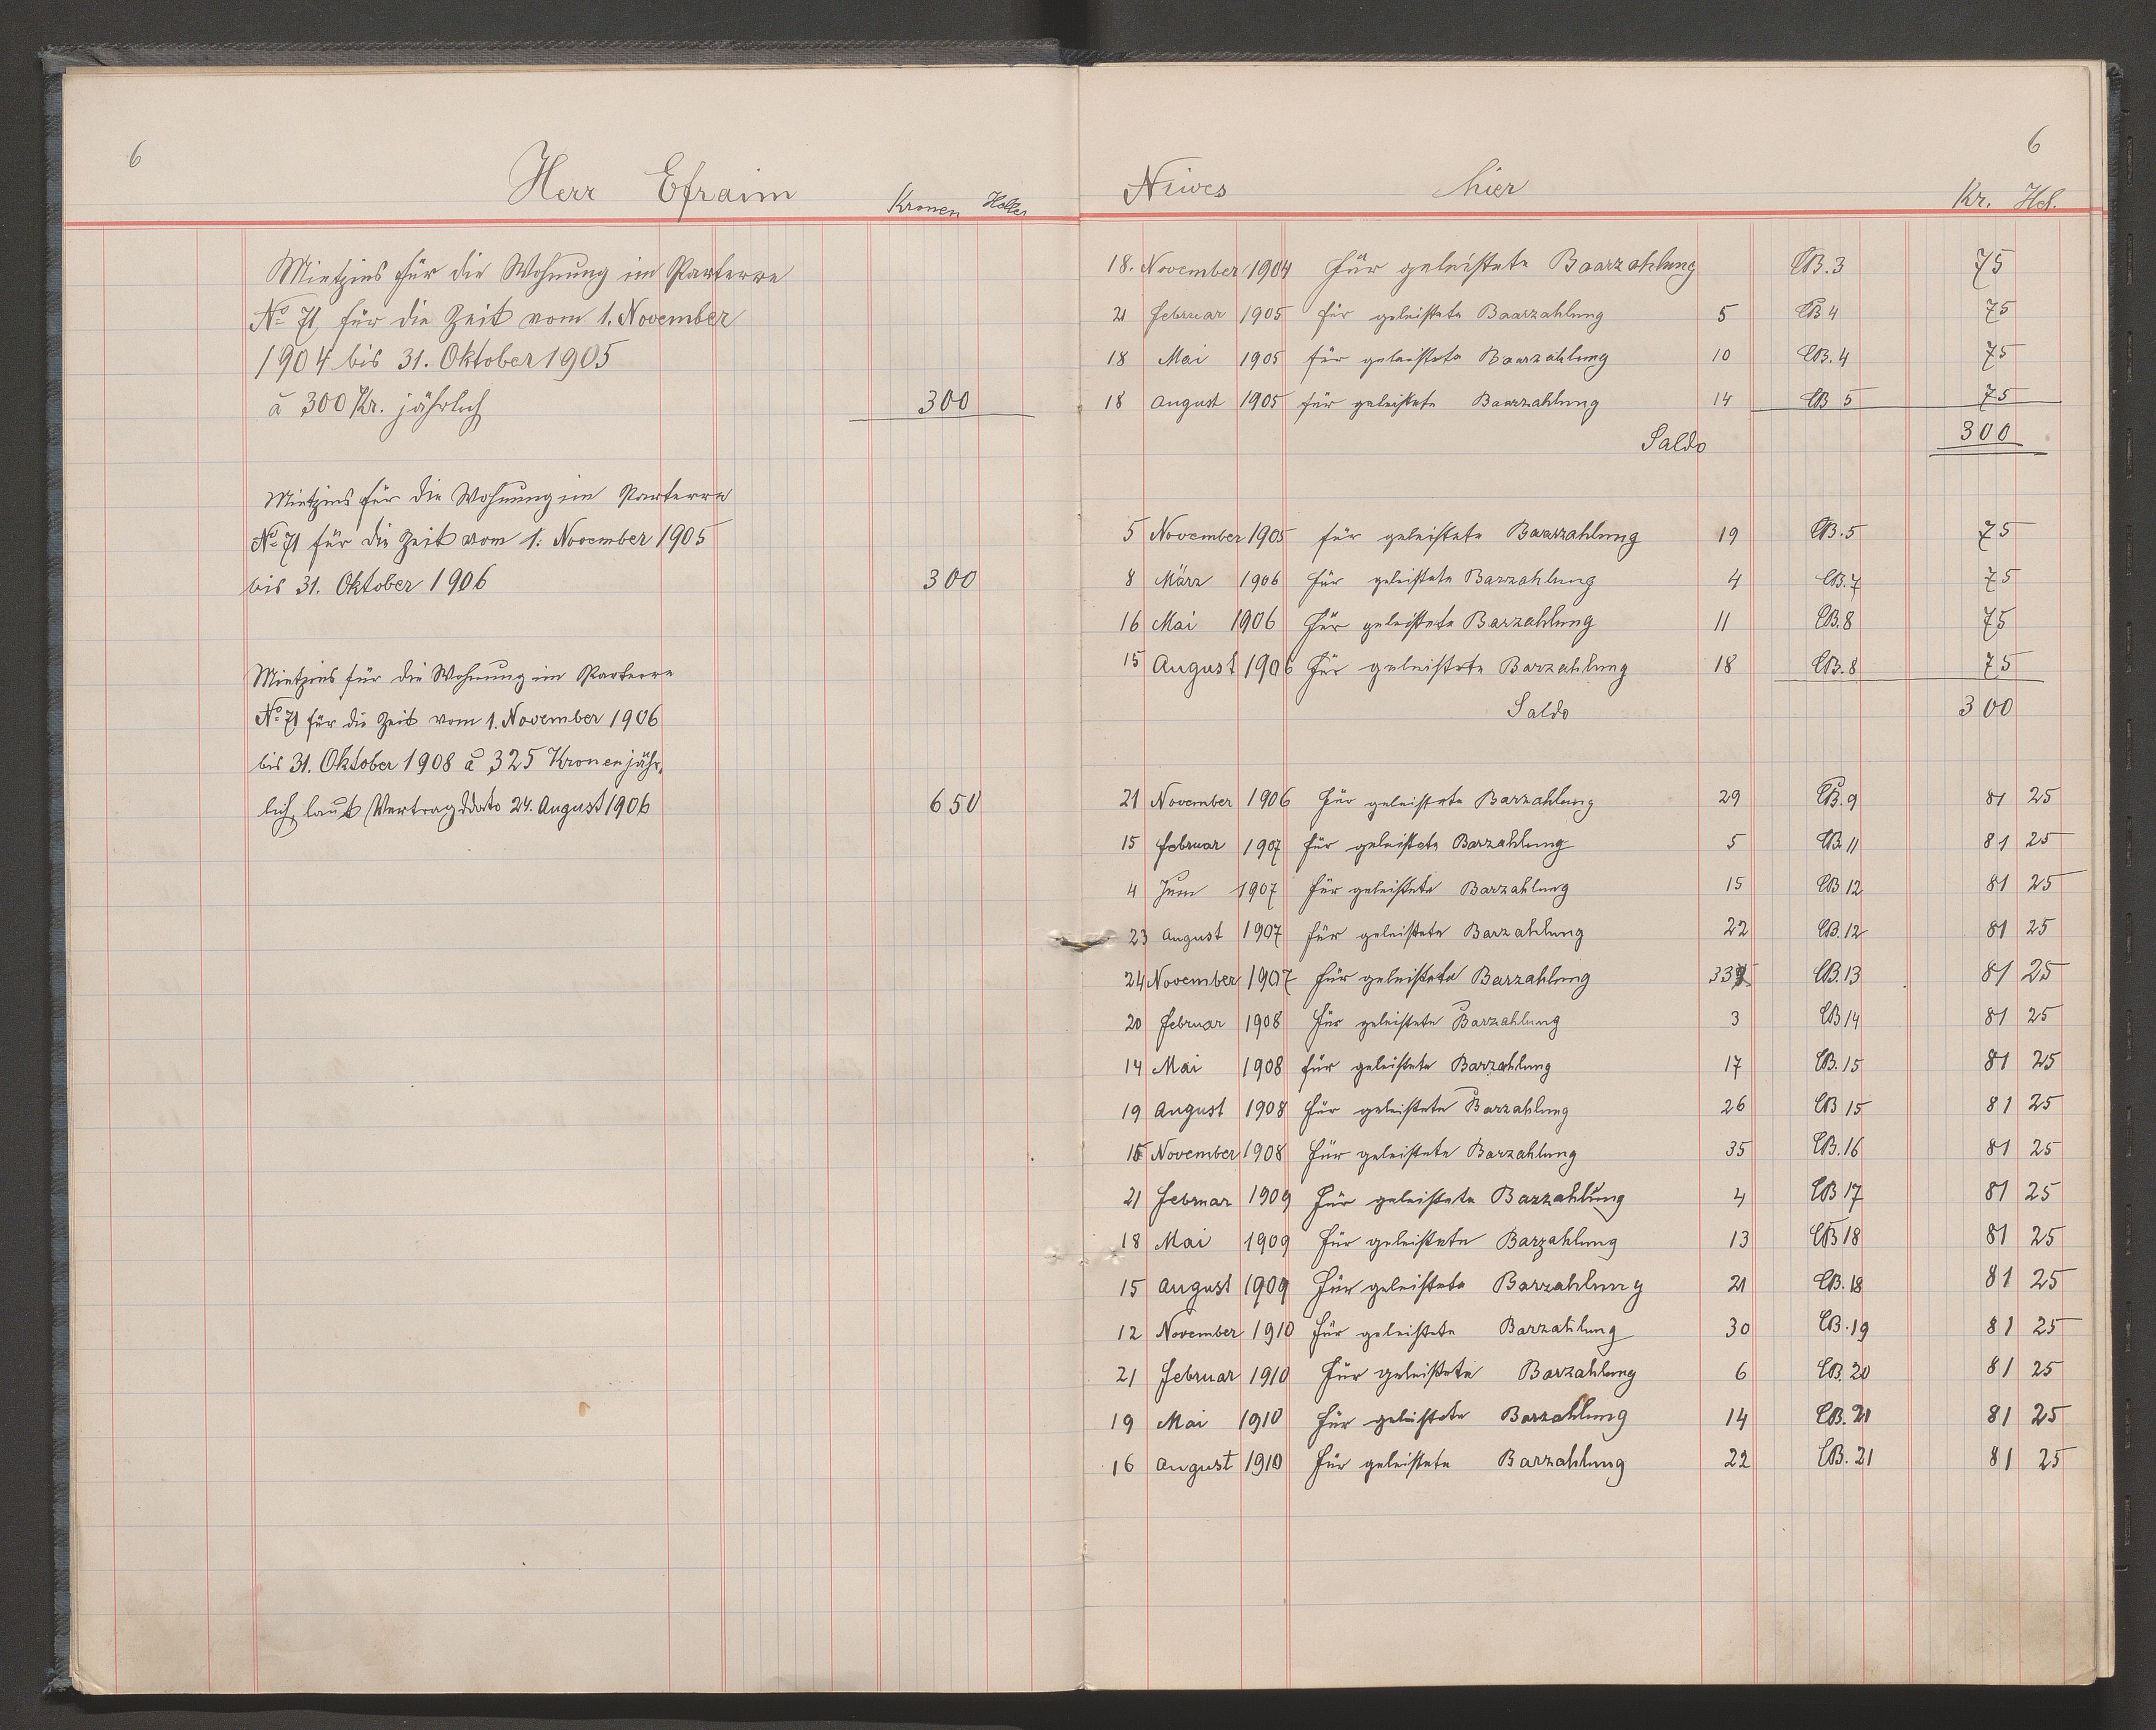 6
Herr Efraim
Kronen Heller
Mietzins für die Wohnung im Parterre
No 71 für die Zeit vom 1. November
1904 bis 31. Oktober 1905
à 300 Kr. jährlich 300
Mietzins für die Wohnung im Parterre
No 71 für die Zeit vom 1. November 1905
bis 31. Oktober 1906 300
Mietzins für die Wohnung im Parterre
No 71 für die Zeit vom 1. November 1906
bis 31. Oktober 1908 à 325 Kronen jähr,
lich, laut Vertrag ddato 24. August 1906 650
6
Niwes hier
Kr. Hel.
18. November 1904 für geleistete Baarzahlung CB. 3 75
21 Februar 1905 für geleistete Baarzahlung 5 CB 4 75
18 Mai 1905 für geleistete Baarzahlung 10 CB. 4 75
18 August 1905 für geleistete Baarzahlung 14 CB 5 75
Saldo 300
5 November 1905 für geleistete Baarzahlung 19 CB. 5 75
8 März 1906 für geleistete Barzahlung 4 CB. 7 75
16 Mai 1906 für geleistete Barzahlung 11 CB. 8 75
15 August 1906 für geleistete Barzahlung 18 CB. 8 75
Saldo 300
21 November 1906 für geleistete Barzahlung 29 CB. 9 81 25
15 Februar 1907 für geleistete Barzahlung 5 CB. 11 81 25
4 Juni 1907 für geleistete Barzahlung 15 CB 12 81 25
23 August 1907 für geleistete Barzahlung 22 CB. 12 81 25
24 November 1907 für geleistete Barzahlung 33 CB. 13 81 25
20 Februar 1908 für geleistete Barzahlung 3 CB 14 81 25
14 Mai 1908 für geleistete Barzahlung 17 CB. 15 81 25
19 August 1908 für geleistete Barzahlung 26 CB 15 81 25
November 1908 für geleistete Barzahlung 35 CB. 16 81 25
21 Februar 1909 für geleistete Barzahlung 4 CB 17 81 25
18 Mai 1909 für geleistete Barzahlung 13 CB 18 81 25
15 August 1909 für geleistete Barzahlung 21 CB. 18 81 25
12 November 1910 für geleistete Barzahlung 30 CB. 19 81 25
21 Februar 1910 für geleistete Barzahlung 6 CB. 20 81 25
19 Mai 1910 für geleistete Barzahlung 14 CB. 21 81 25
16 August 1910 für geleistete Barzahlung 22 CB. 21 81 25